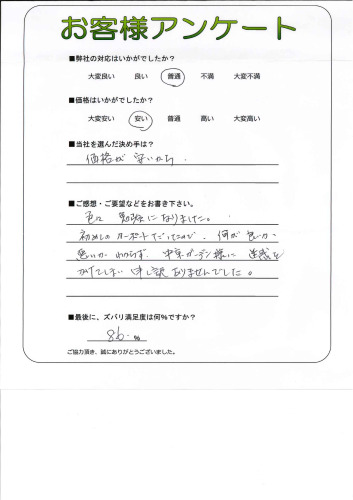 お客様アンケート
■弊社の対応はいかがでしたか？
大変良い　良い　普通　不満　大変不満
■価格はいかがでしたか？
大変安い　安い　普通　高い　大変高い
■当社を選んだ決め手は？
価格が安いから
■ご感想・ご要望などをお書き下さい。
色々 勉強になりました。
初めてのカーポートだったので、何が良いか
悪いか わからず、中京ガーデン様に 迷惑を
かけてしまい 申し訳ありませんでした。
■最後に、ズバリ満足度は何%ですか？
86 %
ご協力頂き、誠にありがとうございました。